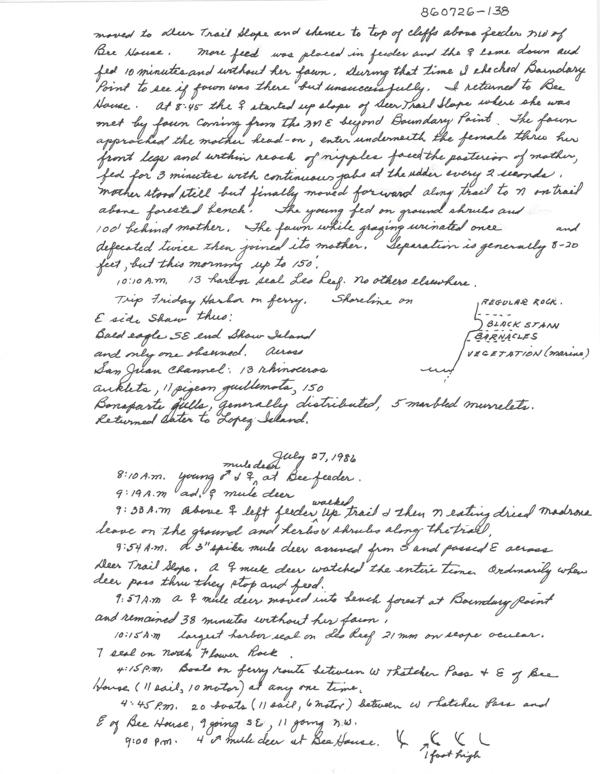 860726-138
moved to Deer Trail Slope and thence to top of cliffs above feeder NW of
Bee House. More feed was placed in feeder and the ♀ came down and
fed 10 minutes and without her fawn. During that time I checked Boundary
Point to see if fawn was there but unsuccessfully. I returned to Bee
House. At 8:45 the ♀ started up slope of Deer Trail Slope where she was
met by fawn coming from the NE beyond Boundary Point. The fawn
approached the mother head-on, enter underneath the female thru her
front legs and within reach of nipples faced the posterior of mother,
fed for 3 minutes with continuous jabs at the udder every 2 seconds.
Mother stood still but finally moved forward along trail to N on trail
above forested bench. The young fed on ground shrubs and
100' behind mother. The fawn while grazing urinated once and
defecated twice then joined its mother. Separation is generally 8-20
feet, but this morning up to 150'.
10:10 A.M. 13 harbor seal Leo Reef. No others elsewhere.
Trip Friday Harbor on ferry. Shoreline on
E side Shaw thus:
REGULAR ROCK.
BLACK STAIN
BARNACLES
VEGETATION (marine)
Bald eagle SE end Shaw Island
and only one observed. Across
San Juan Channel: 13 rhinoceros
auklets, 11 pigeon guillemots, 150
Bonaparte gulls, generally distributed, 5 marbled murrelets.
Returned later to Lopez Island.
July 27, 1986
8:10 A.M. young ♂ & ♀ mule deer at Bee feeder.
9:19 A.M ad. ♀ mule deer
9:30 A.M above ♀ left feeder walked up trail & then N eating dried madrona
leave on the ground and herbs & shrubs along the trail.
9:54 A.M. a 3" spike mule deer arrived from S and passed E across
Deer Trail Slope. A ♀ mule deer watched the entire time. Ordinarily when
deer pass thru they stop and feed.
9:57 A.M a ♀ mule deer moved into bench forest at Boundary Point
and remained 38 minutes without her fawn.
10:15 A.M largest harbor seal on Leo Reef 21 mm on scope ocular.
7 seal on North Flower Rock.
4:15 P.M. Boats on ferry route between W Thatcher Pass & E of Bee
House (11 sail, 10 motor) at any one time.
4:45 P.M. 20 boats (11 sail, 6 motor) between W Thatcher Pass and
E of Bee House, 9 going SE, 11 going N.W.
9:00 P.M. 4 ♂ mule deer at Bee House.
1 foot high